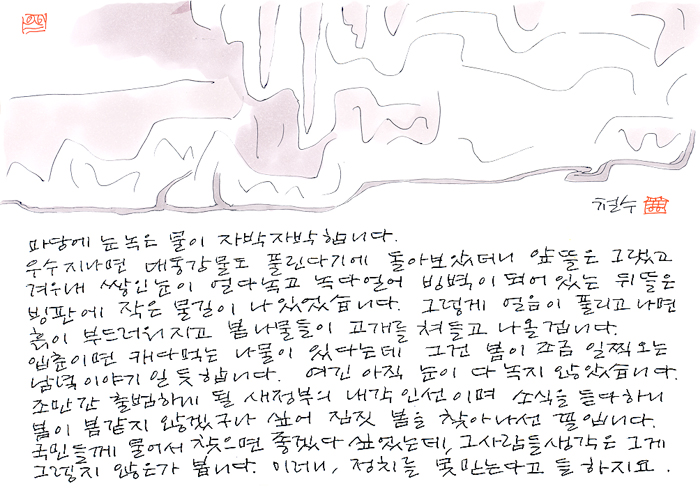 철수
마당에 눈녹은 물이 자박자박합니다.
우수 지나면 대동강물도 풀린다기에 돌아보았더니 앞뜰은 그렇고
겨우내 쌓인눈이 얼다녹고 녹다얼어 빙벽이 되어 있는 뒤뜰은
빙판에 작은 물길이 나 있었습니다. 그렇게 얼음이 풀리고 나면
흙이 부드러워지고 봄나물들이 고개를 쳐들고 나올겁니다.
입춘이면 캐다먹는 나물이 있다는데 그건 봄이 조금 일찍 오는
남녘 이야기 일 듯 합니다. 여긴 아직 눈이 다 녹지 않았습니다.
조만간 출범하게 될 새정부의 내각 인선이며 소식을 듣다하니
봄이 봄같지 않겠구나 싶어 짐짓 봄을 찾아나선 길입니다.
국민들께 물어서 찾으면 좋겠다 싶었는데, 그사람들생각은 그게
그렇지 않은가 봅니다. 이러니, 정치를 못 믿는다고 들 하지요.